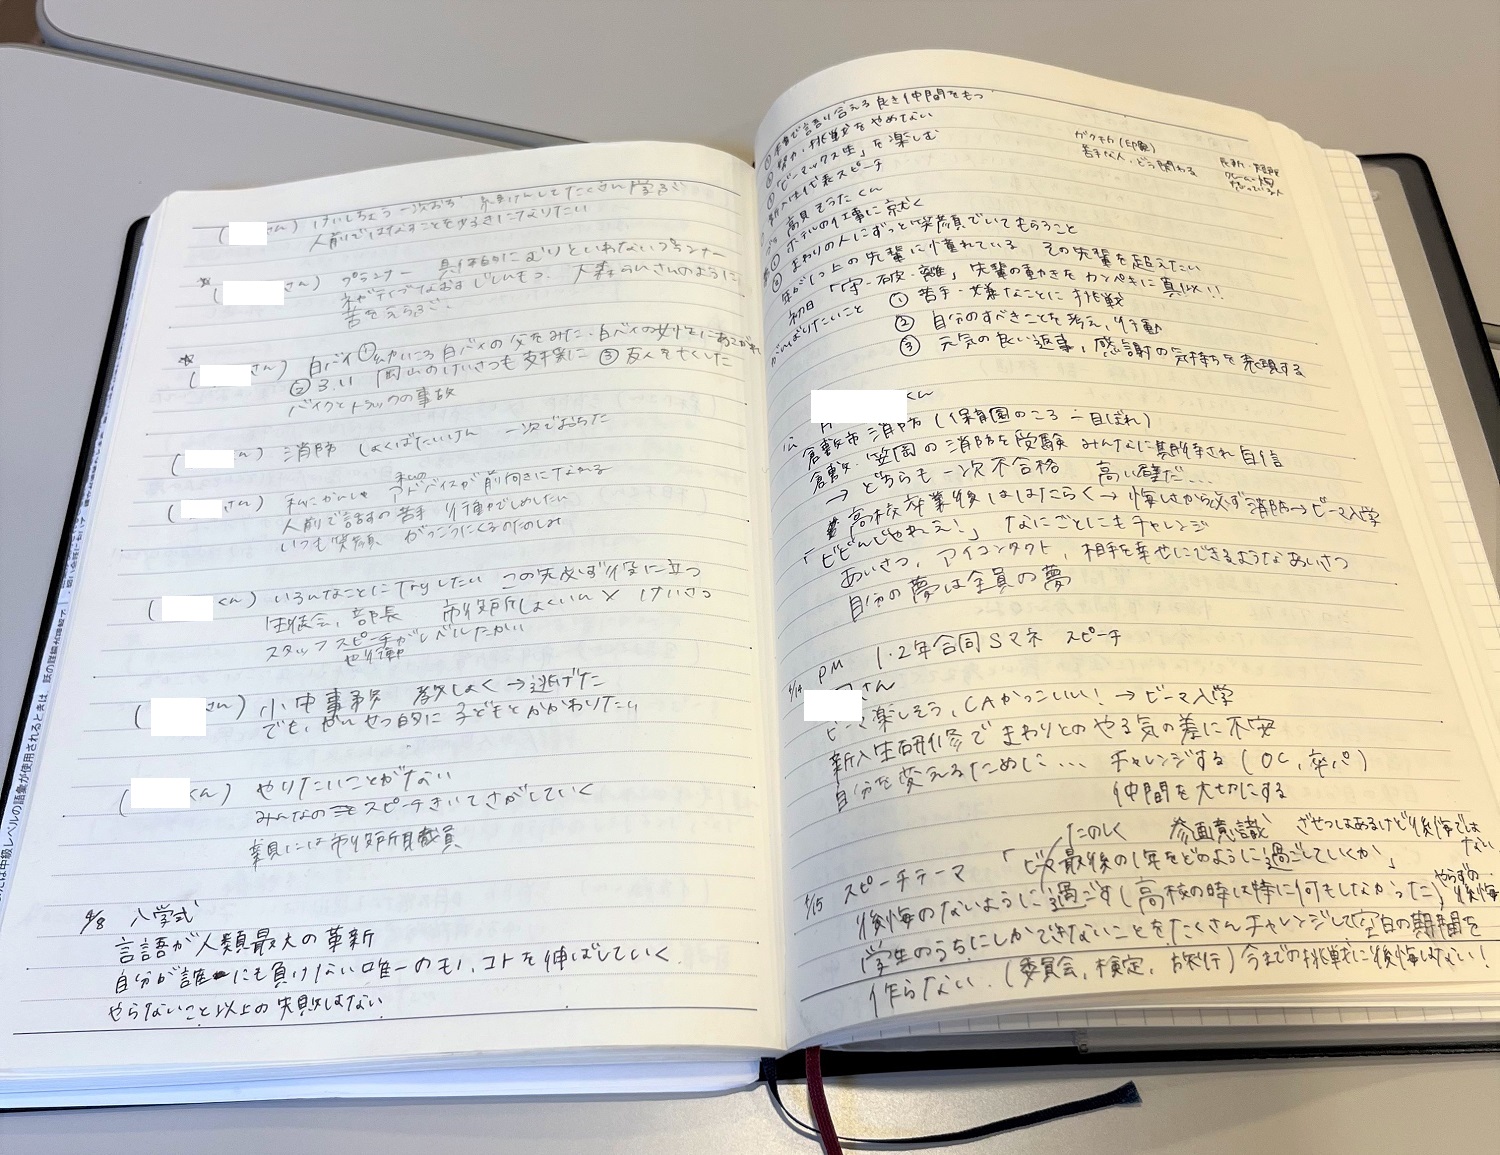 さん) けいしちょう 一次おち 経験としてたくさん学ぶ
人前ではなすことを少しできるようになりたい
さん) プランナー 具体的にむりといわないプランナー
ネガティブなおす
言をえらぶ。
さん) 白バイ ①幼いころ白バイの父をみた・白バイの女性にあこがれ
② 岡山のけいさつも ③ 友人を亡くした
バイクとトラックの事故
さん) 消防 しょくばたいけん 一次でおちた
さん) 私のアドバイスが前向きになれる
人前で話すの苦手 行動でしめしたい
いつも笑顔 がっこうにくるのたのしみ
くん) いろんなことにTryしたい この先必ず役に立つ
生徒会、部長 市役所しょくいん× けいさつ
スタッフ スピーチがレベルたかい
や行動
さん) 小中事務 教しょく→逃げた
でも、かんせつ的に 子どもとかかわりたい
くん) やりたいことがない
みんなの スピーチきいてさがしていく
親には市役所職員
4/8 入学式
言語が人類最大の革新
自分が誰にも負けない唯一のモノ、コトを伸ばしていく.
やらないこと以上の失敗はない
① 本音で語り合える良き仲間をもつ
② 努力・挑戦をやめない
③ 「ビーマックス生」を楽しむ
新入生代表スピーチ
ガクチカ(印象)
苦手な人、どう関わる
長所・短所
高見そうたくん
ホテルの仕事に就く
① まわりの人にずっと笑顔でいてもらうこと
② 年が1つ上の先輩に憧れている その先輩を超えたい
初日「守・破・離」先輩の動きをカンペキに真似!!
がんばりたいこと ① 苦手・嫌なことに挑戦
② 自分のすべきことを考え、行動
③ 元気の良い返事、感謝の気持ちを表現する
くん
倉敷市消防 (保育園のころ一目ぼれ)
倉敷・笠岡の消防を受験 みんなに期待され自信
→ どちらも一次不合格 高い壁だ…
高校卒業後ははたらく→悔しさから必ず消防→ビーマ入学
「ビビんじゃねえ!」 なにごとにもチャレンジ
あいさつ、アイコンタクト、相手を幸せにできるようなあいさつ
自分の夢は全員の夢
4/14 PM 1・2年合同Sマネ スピーチ
さん
ビーマ楽しそう、CAかっこいい! → ビーマ入学
新入生研修でまわりとのやる気の差に不安
自分を変えるために… チャレンジする (OC、卒パ)
仲間を大切にする
たのしく 参画意識 ざせつはあるけど後悔ではない
4/15 スピーチテーマ 「ビーマ最後の1年をどのように過ごしていくか」
やらずの後悔
後悔のないように過ごす(高校の時は特に何もしなかった)
学生のうちにしかできないことをたくさんチャレンジして空白の期間を
作らない. (委員会、検定、旅行) 今までの挑戦に後悔はない!